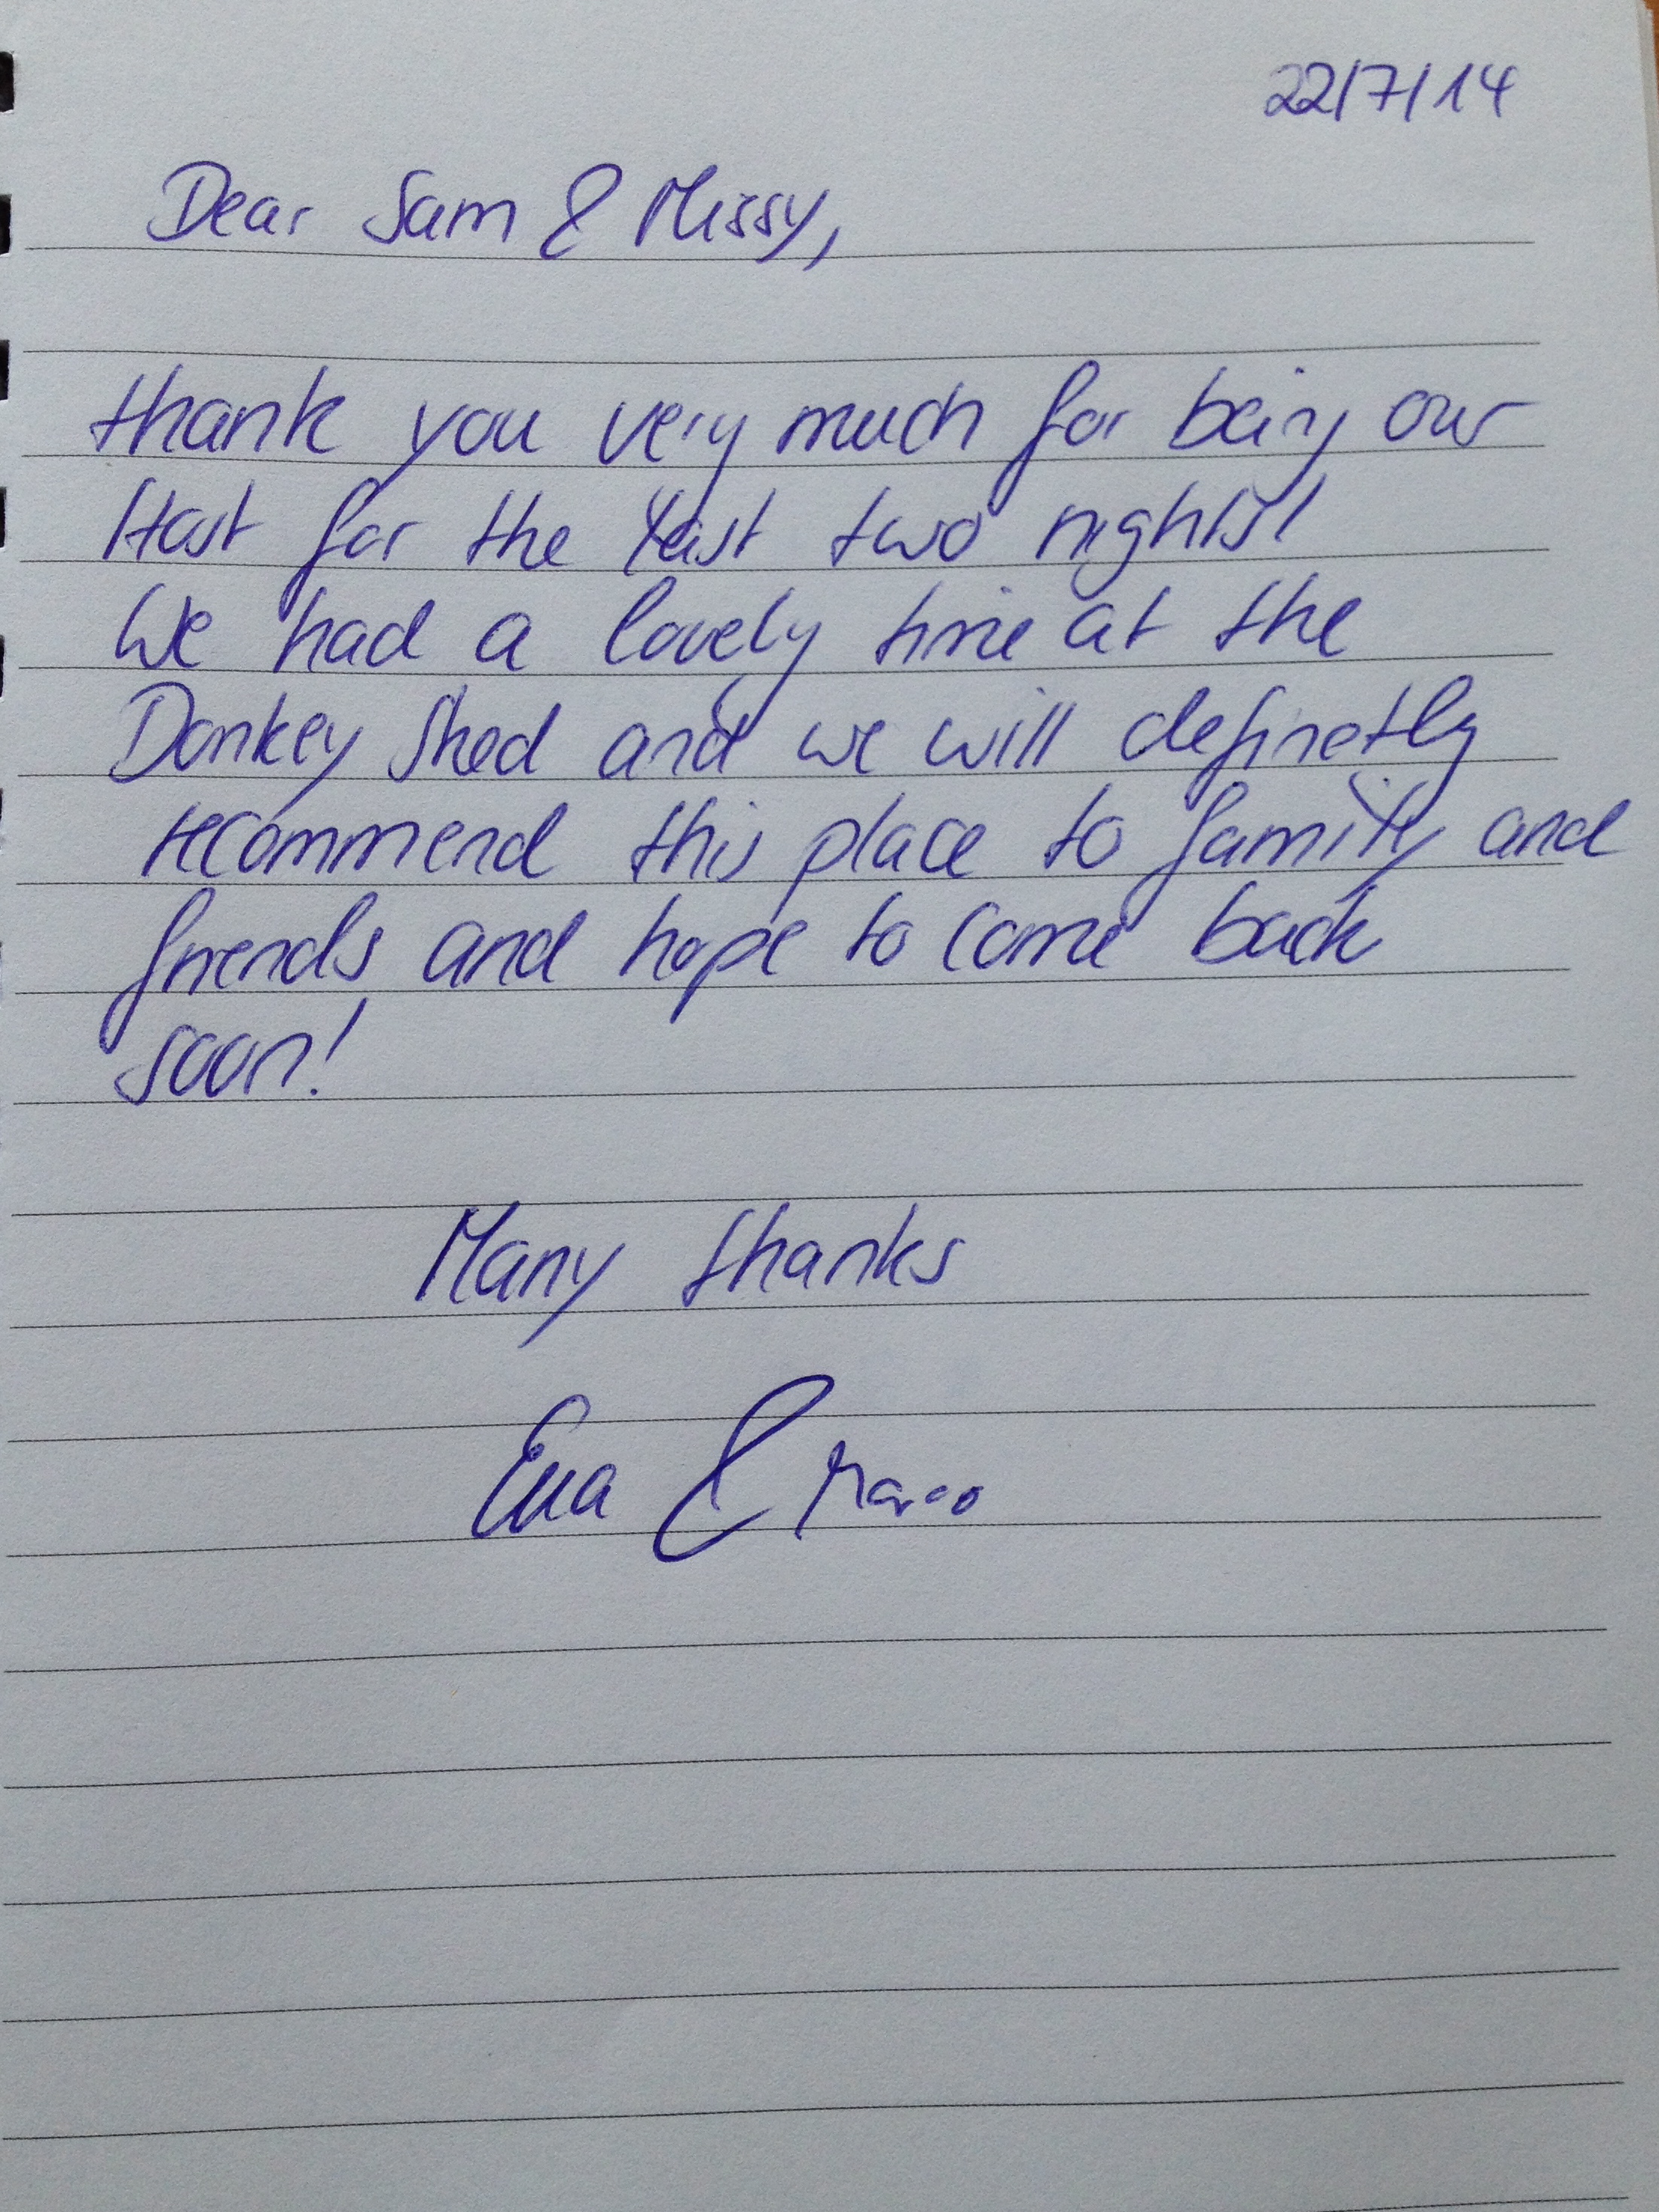 22/7/14
Dear Sam & Missy,
thank you very much for being our
Host for the last two nights!
We had a lovely time at the
Donkey Shed and we will definetly
recommend this place to family and
friends and hope to come back
soon!
Many thanks
Eva & Marco